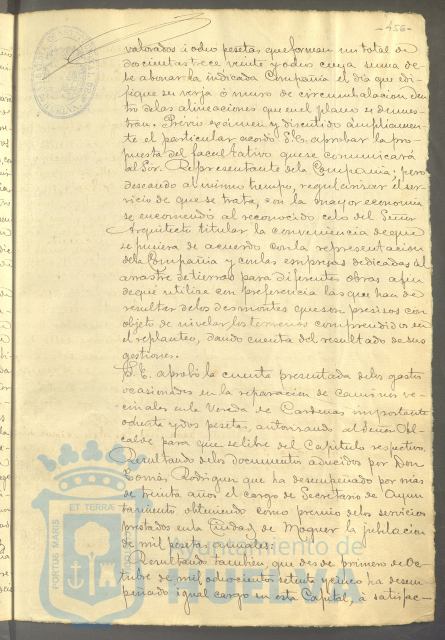 -456-
valorados á ocho pesetas que forman un total de
doscientas trece veinte y ocho cuya suma de-
be abonar la indicada Compañia el dia que edi-
fique su verja ó muro de circumbalacion den-
tro de las alineaciones que en el plano se demues-
tran. Previo exámen y discutido ámpliamen-
te el particular acordo S.E. aprobar la pro-
puesta del facultativo que se comunicará
al Sor. Representante de la Compañia; pero
deseando al mismo tiempo, regularizar el ser-
vicio de que se trata, con la mayor economia
se encomendó al reconocido celo del Señor
Arquitecto titular la conveniencia de que
se pusiera de acuerdo con la representacion
de la Compañia y con las empresas dedicadas al
arrastre de tierras para diferentes obras a fin
de que utilize con preferencia las que han de
resultar de los desmontes que son precisos con
objeto de nivelar los terrenos comprendidos en
el replanteo, dando cuenta del resultado de sus
gestiones.
S.E. aprobó la cuenta presentada de los gastos
ocasionados en la reparacion de caminos ve-
cinales en la Vereda de Cardenas importante
ochenta y dos pesetas, autorizando al Señor Al-
calde para que se libre del Capitulo respectivo.
Resultando de los documentos aducidos por Don
Tomás Rodriguez que ha desempeñado por más
de treinta años el cargo de Secretario de Ayun-
tamiento obteniendo como premio de los servicios
prestados en la Ciudad de Moguer la jubilacion
de mil pesetas anuales.
Resultando tambien, que desde primero de Oc-
tubre de mil ochocientos setenta y cinco ha desem-
peñado igual cargo en esta Capital, á satisfac-
PORTUS MARIS ET TERRAE
Ayuntamiento de
HUELVA